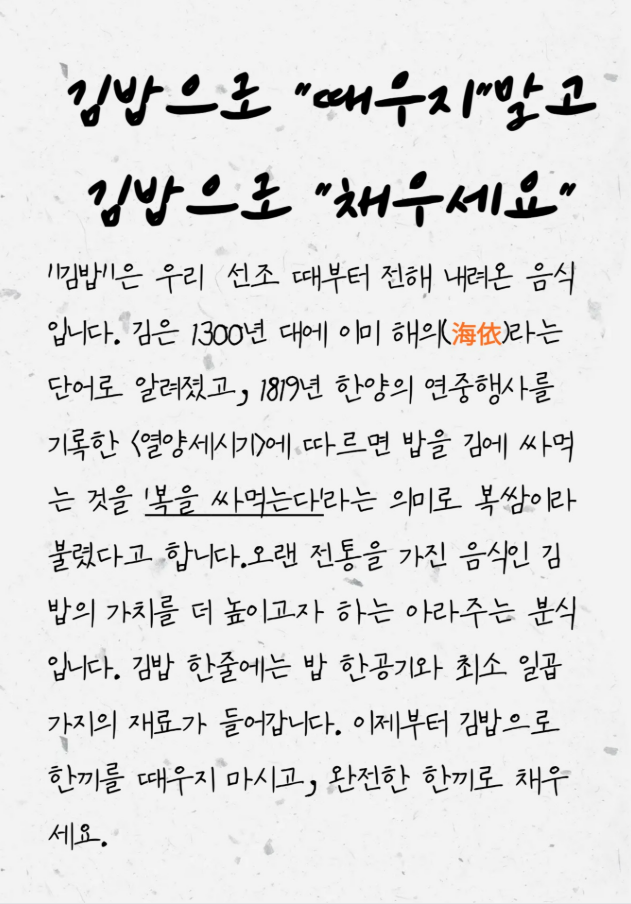 김밥으로 "때우지"말고
김밥으로 "채우세요"
"김밥"은 우리 선조 때부터 전해 내려온 음식
입니다. 김은 1300년 대에 이미 해의(海依)라는
단어로 알려졌고, 1819년 한양의 연중행사를
기록한 <열양세시기>에 따르면 밥을 김에 싸먹
는 것을 '복을 싸먹는다'라는 의미로 복쌈이라
불렸다고 합니다.오랜 전통을 가진 음식인 김
밥의 가치를 더 높이고자 하는 아라주는 분식
입니다. 김밥 한줄에는 밥 한공기와 최소 일곱
가지의 재료가 들어갑니다. 이제부터 김밥으로
한끼를 때우지 마시고, 완전한 한끼로 채우
세요.